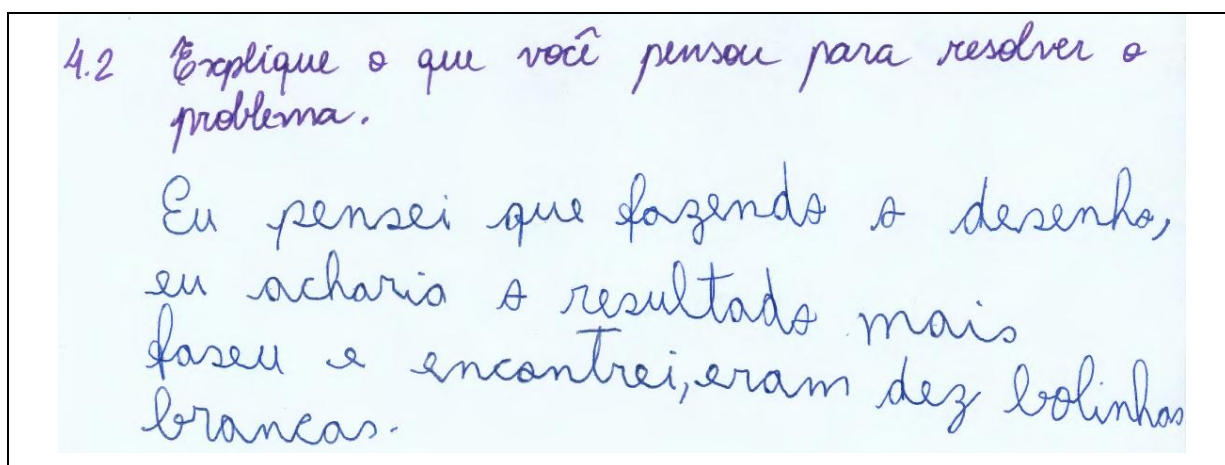 4.2 Explique o que você pensou para resolver o
problema.
Eu pensei que fazendo o desenho,
eu acharia o resultado mais
faseu e encontrei, eram dez bolinhas
brancas.